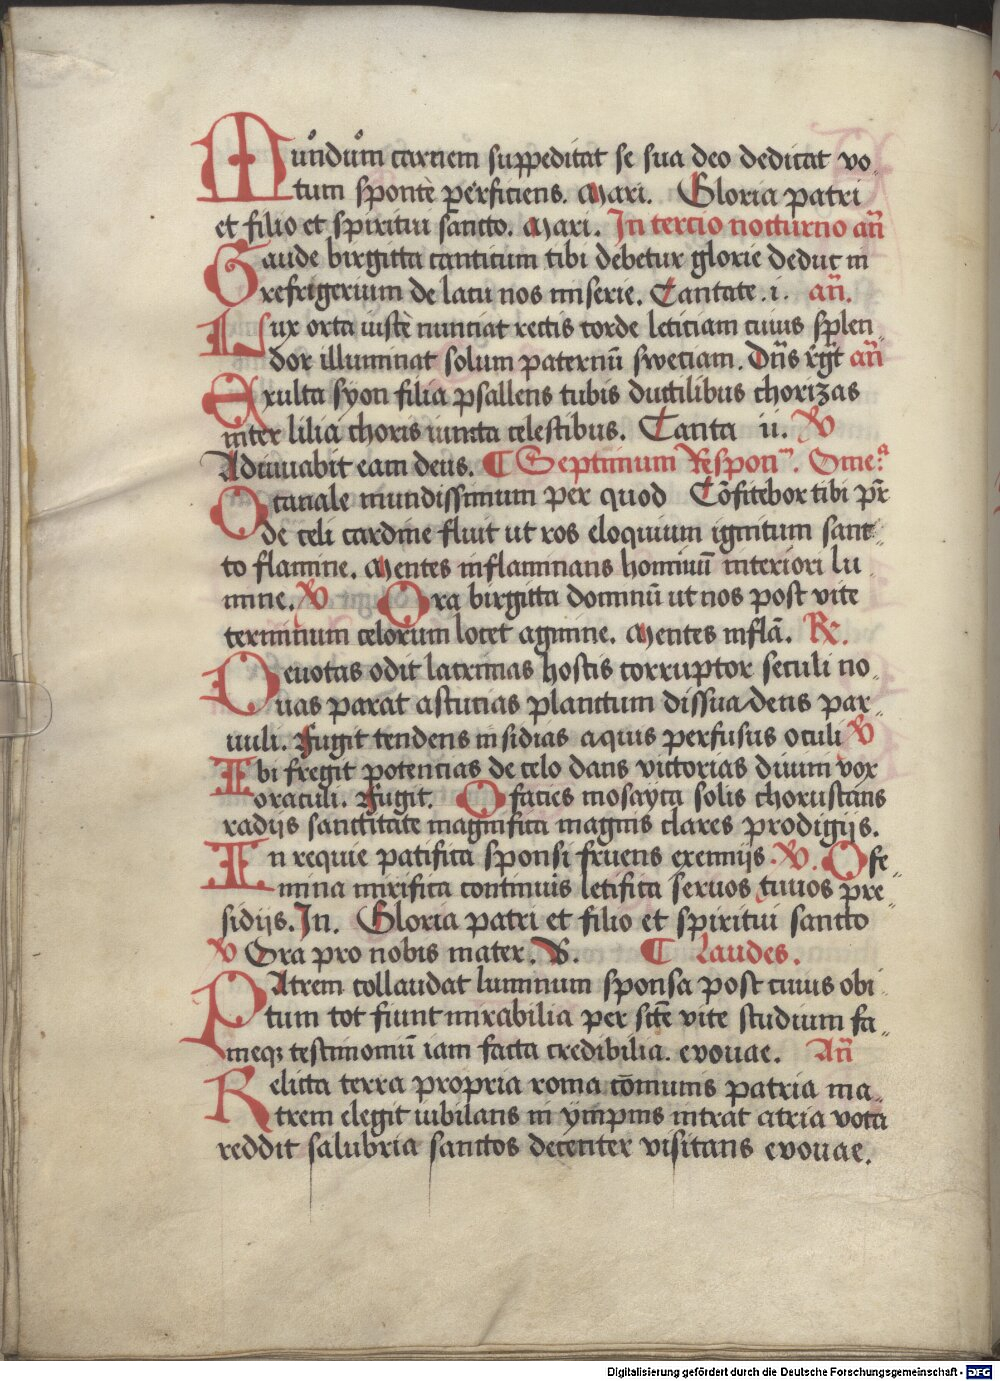 Mundum carnem suppeditat se sua deo dedicat vo
tum sponte perficiens. Mari. Gloria patri
et filio et spiritui sancto. Mari. In tercio nocturno añ
Gaude birgitta canticum tibi debetur glorie deduc in
refrigerium de lacu nos miserie. Cantate .i. añ.
Lux orta iuste nunciat rectis corde leticiam cuius splen
dor illuminat solum paternū sweciam. Dñs rg̃t añ
Exulta syon filia psallens tubis ductilibus chorizas
inter lilia choris iuncta celestibus. Canta ii. V
Adiuuabit eam deus. Septimum Respon. Ome.ª
O canale mundissimum per quod Cōfitebor tibi pr̄
de celi cardine fluit ut ros eloquium ignitum sanc
to flamine. Mentes inflammans hominū interiori lu
mine. V Ora birgitta dominū ut nos post vite
terminum celorum locet agmine. Mentes inflā. R.
Deuotas odit lacrimas hostis corruptor seculi no
uas parat astucias planctum dissuadens par
uuli. Fugit tendens insidias aquis perfusus oculi V
Ibi fregit potencias de celo dans victorias diuum vox
oraculi. Fugit. O facies mosayca solis choruscans
radijs sanctitate magnifica magnis clares prodigijs.
In requie patifica sponsi fruens exennijs. V. O fe
mina mirifica continuis letifica seruos tuuos pre
sidijs. In. Gloria patri et filio et spiritui sancto
V Ora pro nobis mater. B. Laudes.
Patrem collaudat luminum sponsa post cuius obi
tum tot fiunt mirabilia per sctē vite studium fa
meq; testimoniū iam facta credibilia. evouae. Añ
Relicta terra propria roma cōmunis patria ma
trem elegit iubilans in ympnis intrat atria vota
reddit salubria sanctos decenter visitans evouae.
Digitalisierung gefördert durch die Deutsche Forschungsgemeinschaft - DFG